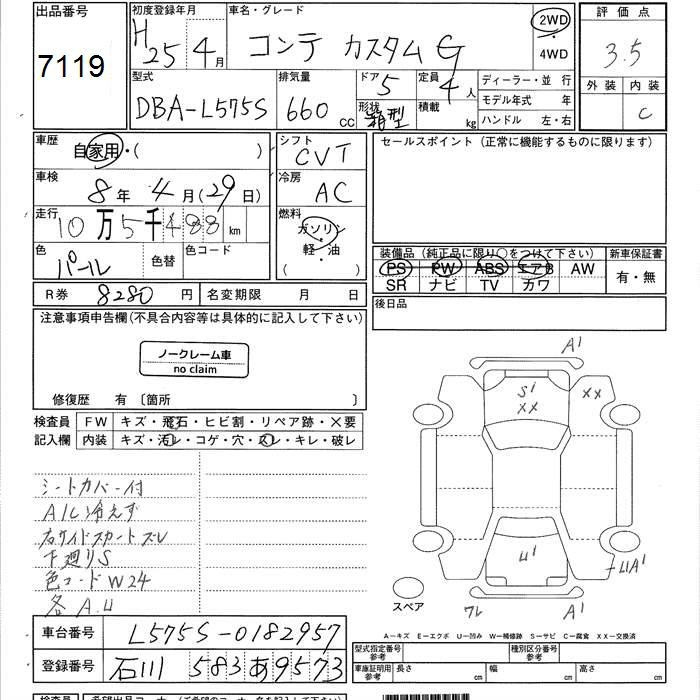 出品番号
7119
初度登録年月
H25 4月
車名・グレード
コンテ カスタム G
2WD
・
4WD
評価点
3.5
外装 内装
C
型式
DBA-L575S
排気量
660 CC
ドア
5
形状
箱型
定員
4人
積載
kg
ディーラー・並行
モデル年式 年
ハンドル 左・右
車歴
自家用・( )
シフト
CVT
セールスポイント (正常に機能するものに限ります)
車検
8年 4月(29日)
冷房
AC
走行
10万5千488km
燃料
ガソリン
・
軽・油
( )
色
パール
色替
色コード
装備品 (純正品に限り○をつけて下さい)
PS PW ABS エアB AW
SR ナビ TV カワ
新車保証書
有・無
R券 8280円
名変期限 月 日
後日品
注意事項申告欄(不具合内容等は具体的に記入して下さい)
ノークレーム車
no claim
修復歴 有 〔箇所 〕
検査員
記入欄
FW キズ・飛石・ヒビ割・リペア跡・×要
内装 キズ・汚レ・コゲ・穴・スレ・キレ・破レ
シートカバー付
A/C冷えず
右サイドスカートズレ
下廻りS
色コードW24
各A.U
A1
S1
XX
XX
U1
UA1
スペア
ワレ
A1
A−キズ E−エクボ U−凹み W−補修跡 S−サビ C−腐食 XX−交換済
車台番号
L575S-0182957
登録番号
石川 583 あ 9573
型式指定番号
参考
種別区分番号
参考
車庫証明用
参考
長さ cm
幅 cm
高さ cm